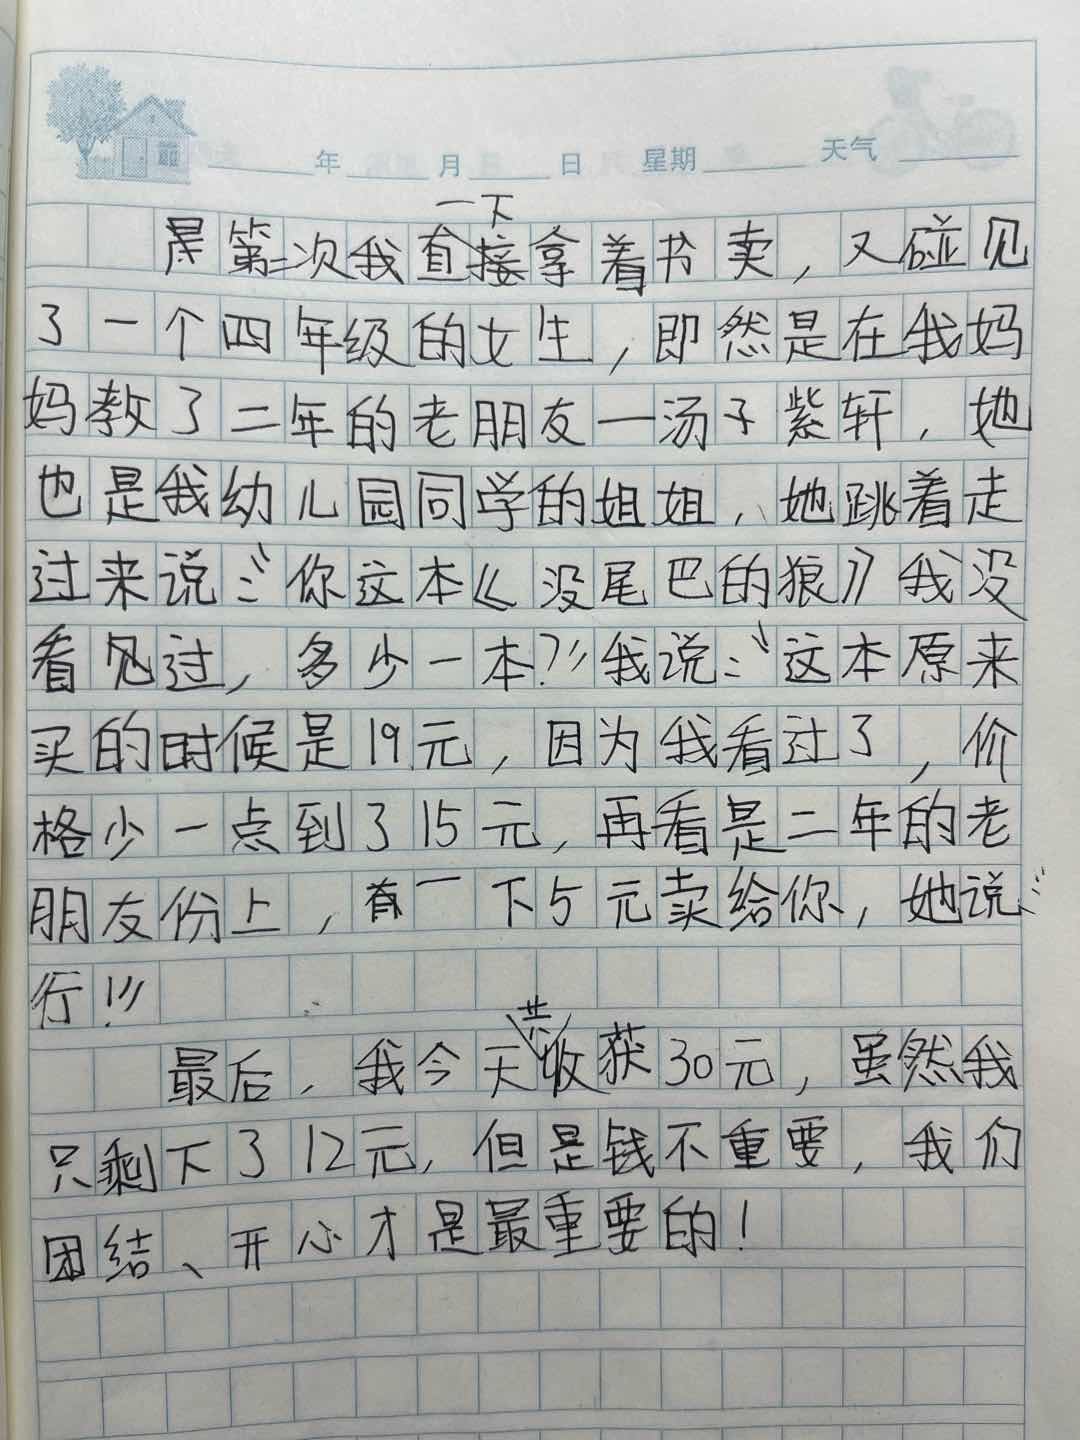 年 月 日 星期 天气
一下
是第二次我直接拿着书卖，又碰见
了一个四年级的女生，即然是在我妈
妈教了二年的老朋友一汤子紫轩，她
也是我幼儿园同学的姐姐，她跳着走
过来说：“你这本《没尾巴的狼》我没
看见过，多少一本？”我说：“这本原来
买的时候是19元，因为我看过了，价
格少一点到了15元，再看是二年的老
朋友份上，有一下5元卖给你，她说：“
行！”
共
最后，我今天收获30元，虽然我
只剩下了12元，但是钱不重要，我们
团结、开心才是最重要的！